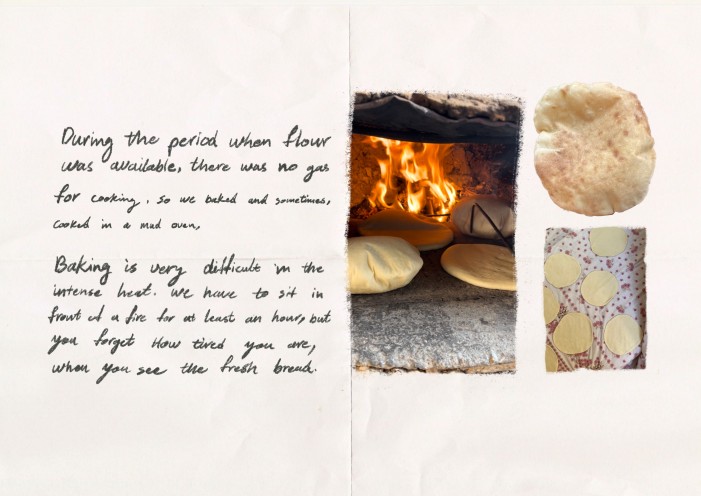 During the period when flour
was available, there was no gas
for cooking, so we baked and sometimes,
cooked in a mud oven,
Baking is very difficult in the
intense heat. We have to sit in
front of a fire for at least an hour, but
you forget How tired you are,
when you see the fresh bread.